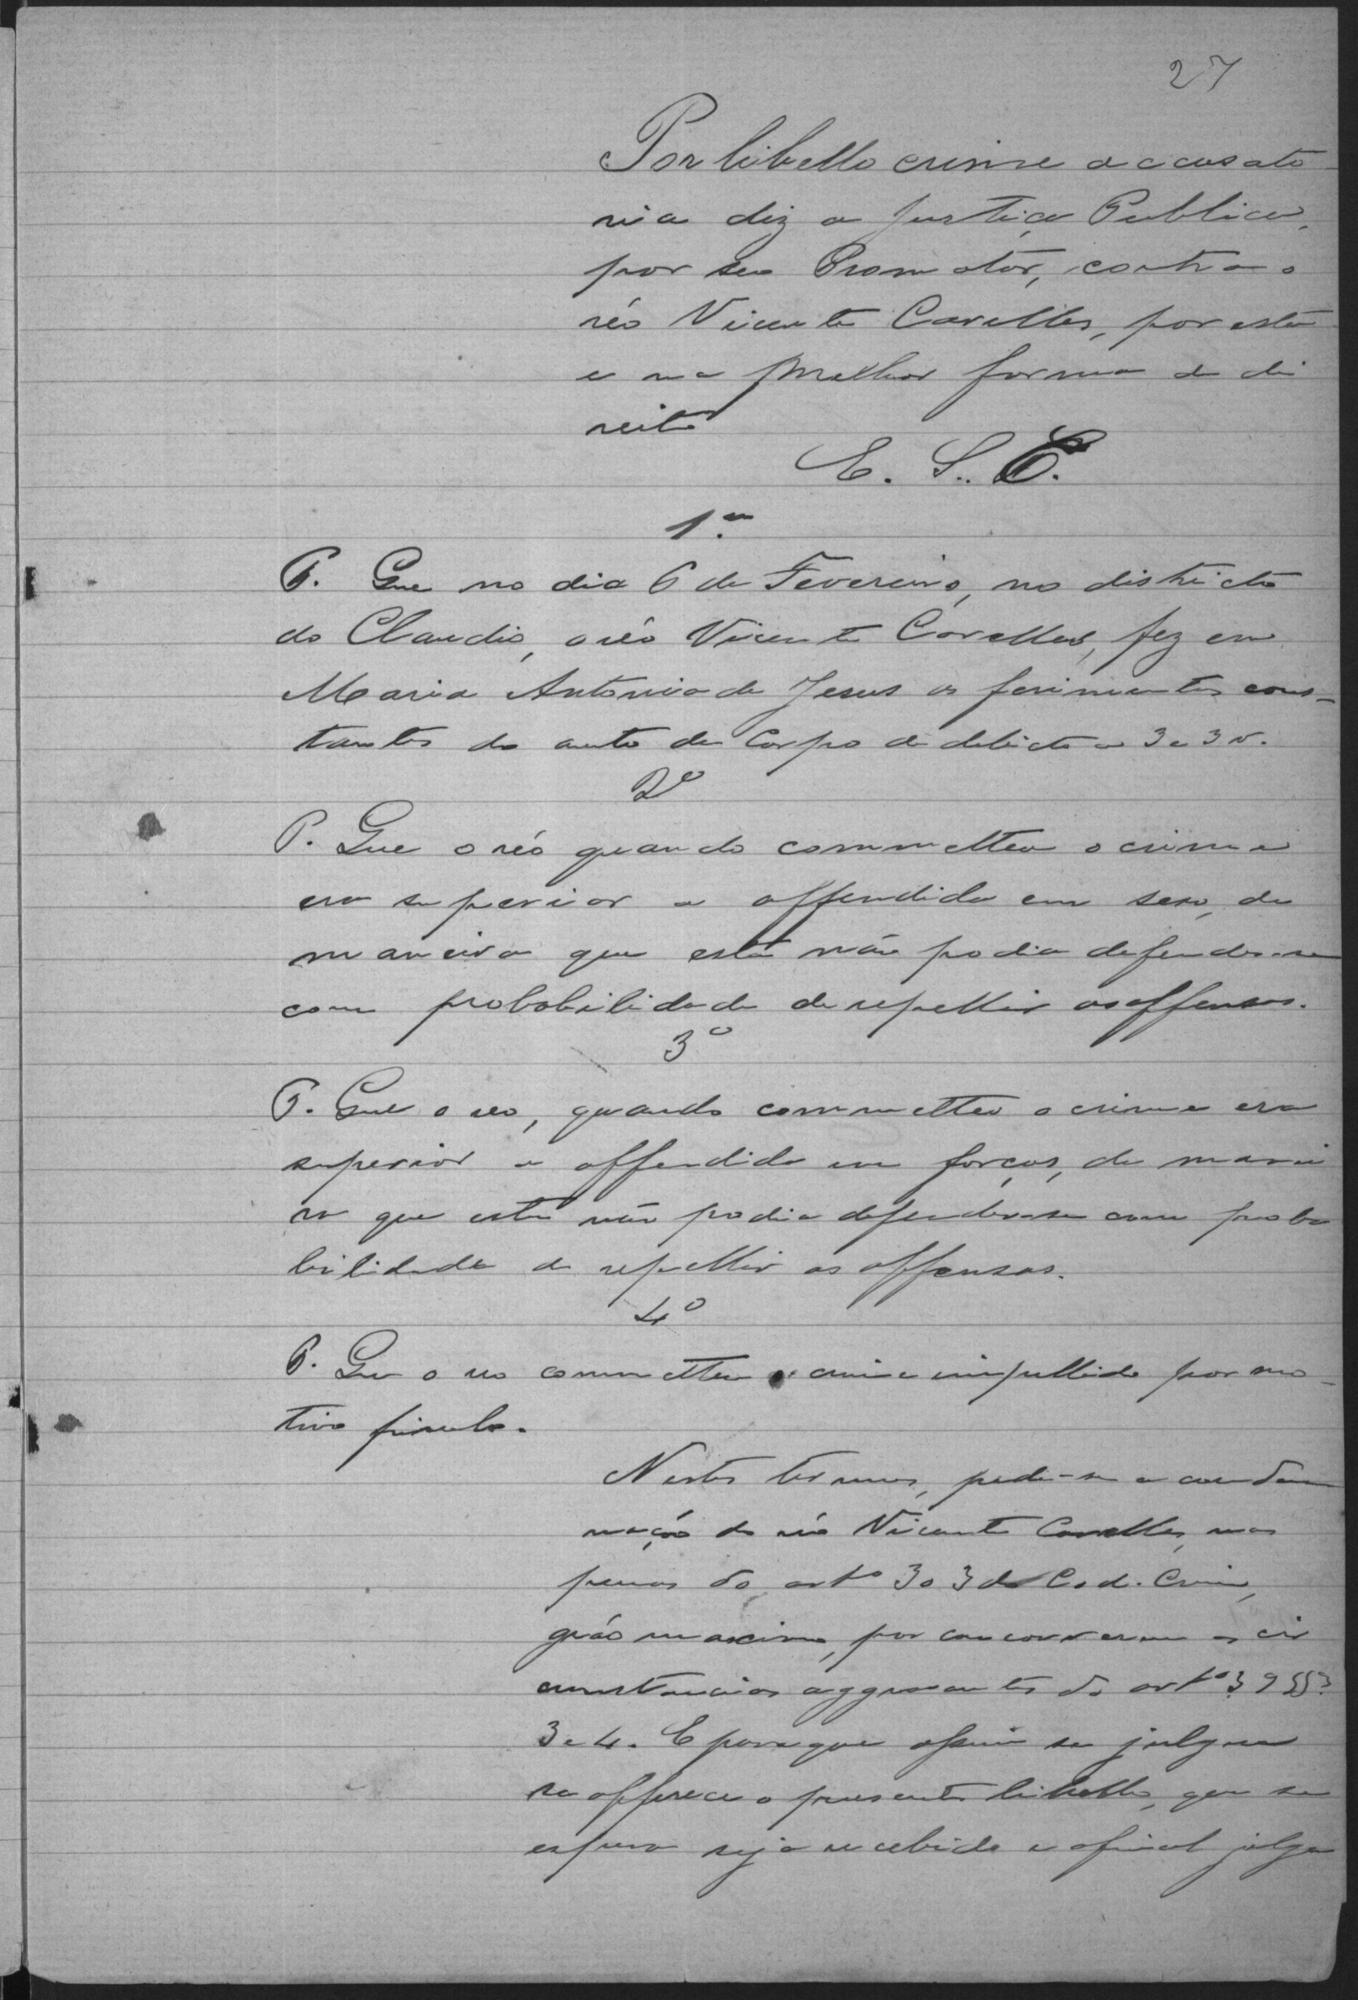 27
Por libello crime accusato-
rio diz a Justiça Publica,
por seu Promotor, contra o
réo Vicente Corelles, por esta
e na melhor forma de di
reito
E. S. C.
1.º
P. Que no dia 6 de Fevereiro, no districto
do Claudio, o réo Vicente Corelles, fez em
Maria Antonia de Jesus os ferimentos cons-
tantes do auto de Corpo de delicto a 3 e 3 v.
2º
P. Que o réo quando commetteu o crime
era superior a offendida em sexo, de
maneira que esta não podia defender-se
com probabilidade de repellir as offensas.
3º
P. Que o reo, quando commetteu o crime era
superior a offendida em forças, de manei
ra que esta não podia defender-se com proba
bilidade de repellir as offensas.
4º
P. Que o reo commetteu o crime impellido por mo-
tivo frivolo.
Nestes termos, pede-se a condem
nação do réo Vicente Corelles, nas
penas do artº 303 do Cod. Crim,
gráo maximo, por concorrerem as cir
cumstancias aggravantes do artº 39 §§
3 e 4. E para que assim se julgue
se offerece o presente libello, que se
espera seja recebido e afinal julga